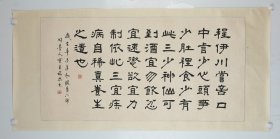 程伊川嘗言口
中言少心頭事
少肚裡食少有
此三少神仙可
到酒宜節飲忿
宜速懲欲宜力
制依此三宜疾
病自稀真養生
之道也